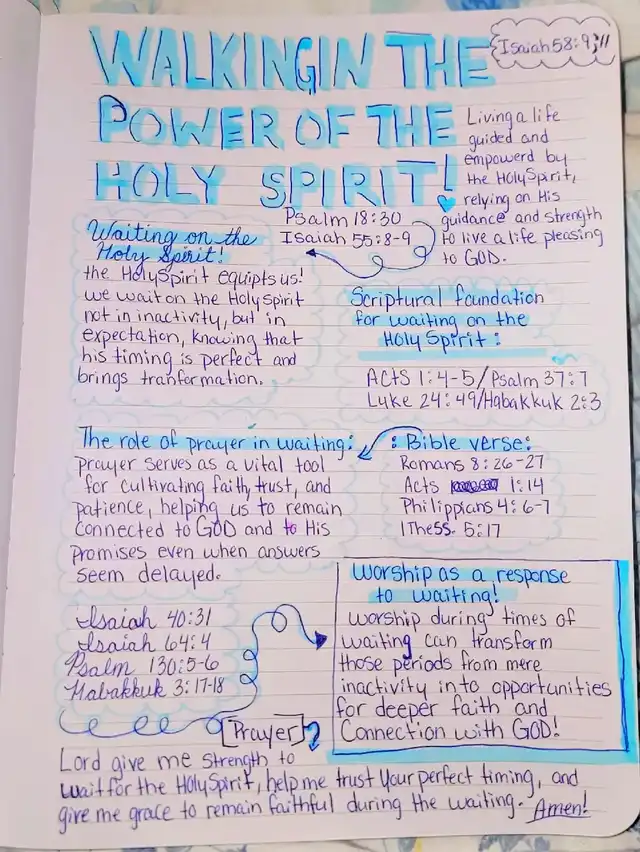 WALKING IN THE
POWER OF THE
HOLY SPIRIT!
Isaiah 58:9;11
Living a life
guided and
empowerd by
the Holy Spirit,
relying on His
guidance and strength
to live a life pleasing
to GOD.
Psalm 18:30
Isaiah 55:8-9
Waiting on the
Holy Spirit!
the Holy Spirit equipts us!
we wait on the Holy Spirit
not in inactivity, but in
expectation, knowing that
his timing is perfect and
brings tranformation.
Scriptural foundation
for waiting on the
Holy Spirit:
Acts 1:4-5/Psalm 37:7
Luke 24:49/Habakkuk 2:3
The role of prayer in waiting:
prayer serves as a vital tool
for cultivating faith, trust, and
patience, helping us to remain
connected to GOD and to His
promises even when answers
seem delayed.
:Bible verse:
Romans 8:26-27
Acts 1:14
Philippians 4:6-7
1 Thess. 5:17
Isaiah 40:31
Isaiah 64:4
Psalm 130:5-6
Habakkuk 3:17-18
Worship as a response
to waiting!
Worship during times of
waiting can transform
those periods from mere
inactivity in to opportunities
for deeper faith and
Connection with GOD!
[Prayer]
Lord give me strength to
wait for the Holy Spirit, help me trust Your perfect timing, and
give me grace to remain faithful during the waiting. Amen!